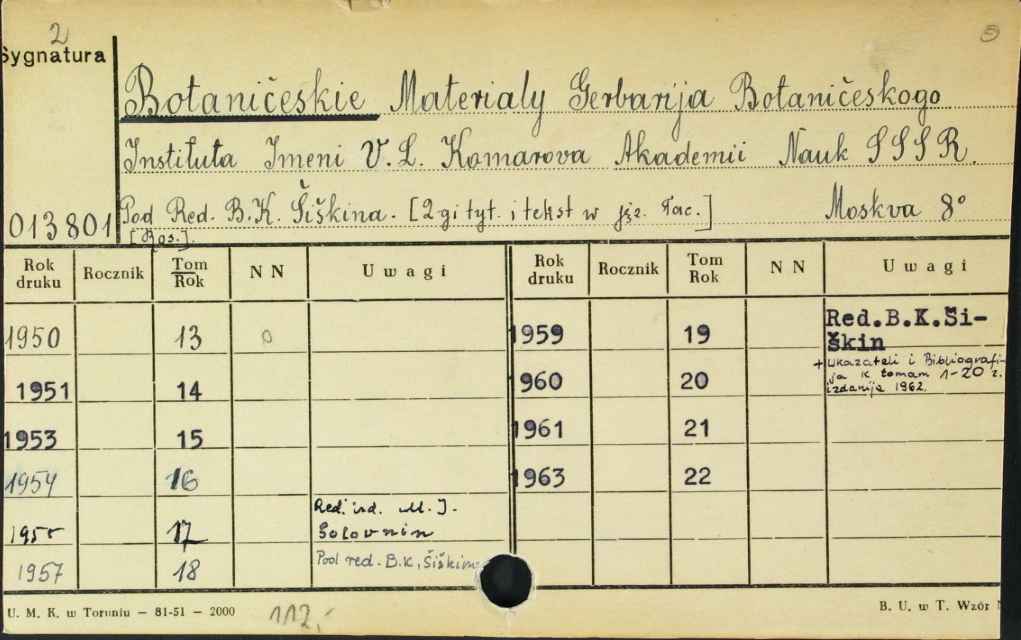 2
5
Sygnatura
Botaničeskie Materialy Gerbarija Botaničeskogo
Instituta Imeni V. L. Komarova Akademii Nauk SSSR.
013801 Pod Red. B.K. Šiškina. [2-gi tyt. i tekst w jęz. łac.] Moskva 8°
[Ros.]
Rok druku Rocznik Tom Rok N N Uwagi Rok druku Rocznik Tom Rok N N Uwagi
1950 13 0 1959 19 Red.B.K.Ši-
škin
+ Ukazateli i Bibliografi-
ja k tomam 1-20 z.
izdanija 1962.
1951 14 960 20
1953 15 1961 21
1954 16 1963 22
1955 17 Red. izd. M. J.
Golovnin
1957 18 Pod red. B.K. Šiškina
U. M. K. w Toruniu — 81-51 — 2000 112,- B. U. w T. Wzór